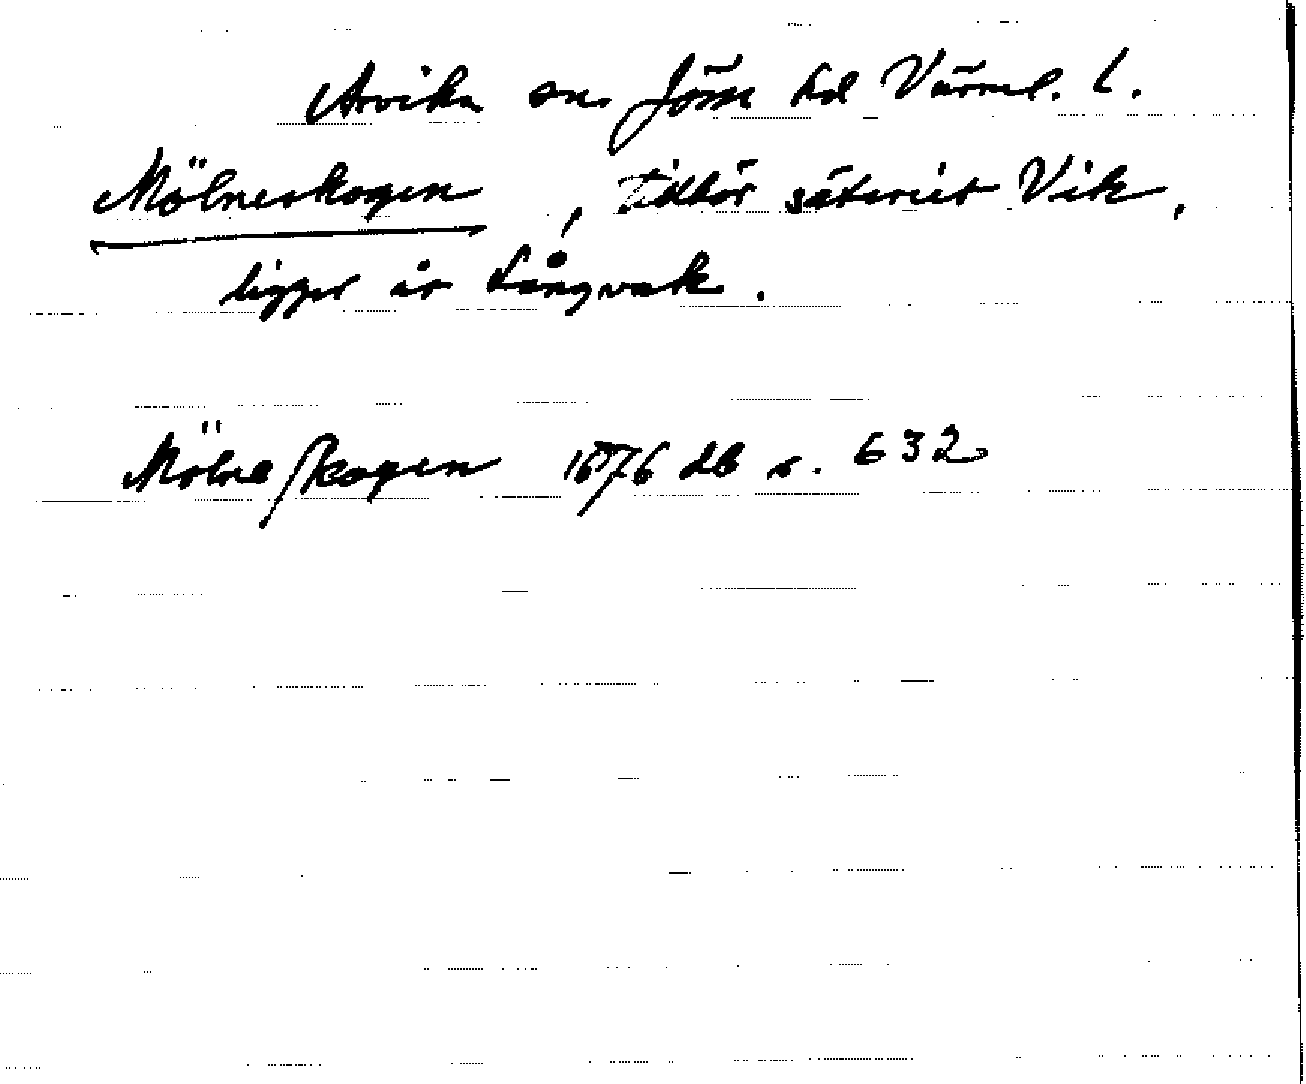 Arvika sn. Jöss hd Värml. l.
Mölneskogen, tillhör säteriet Vik,
ligger är Långvak.
Mölneskogen 1876 db s. 632